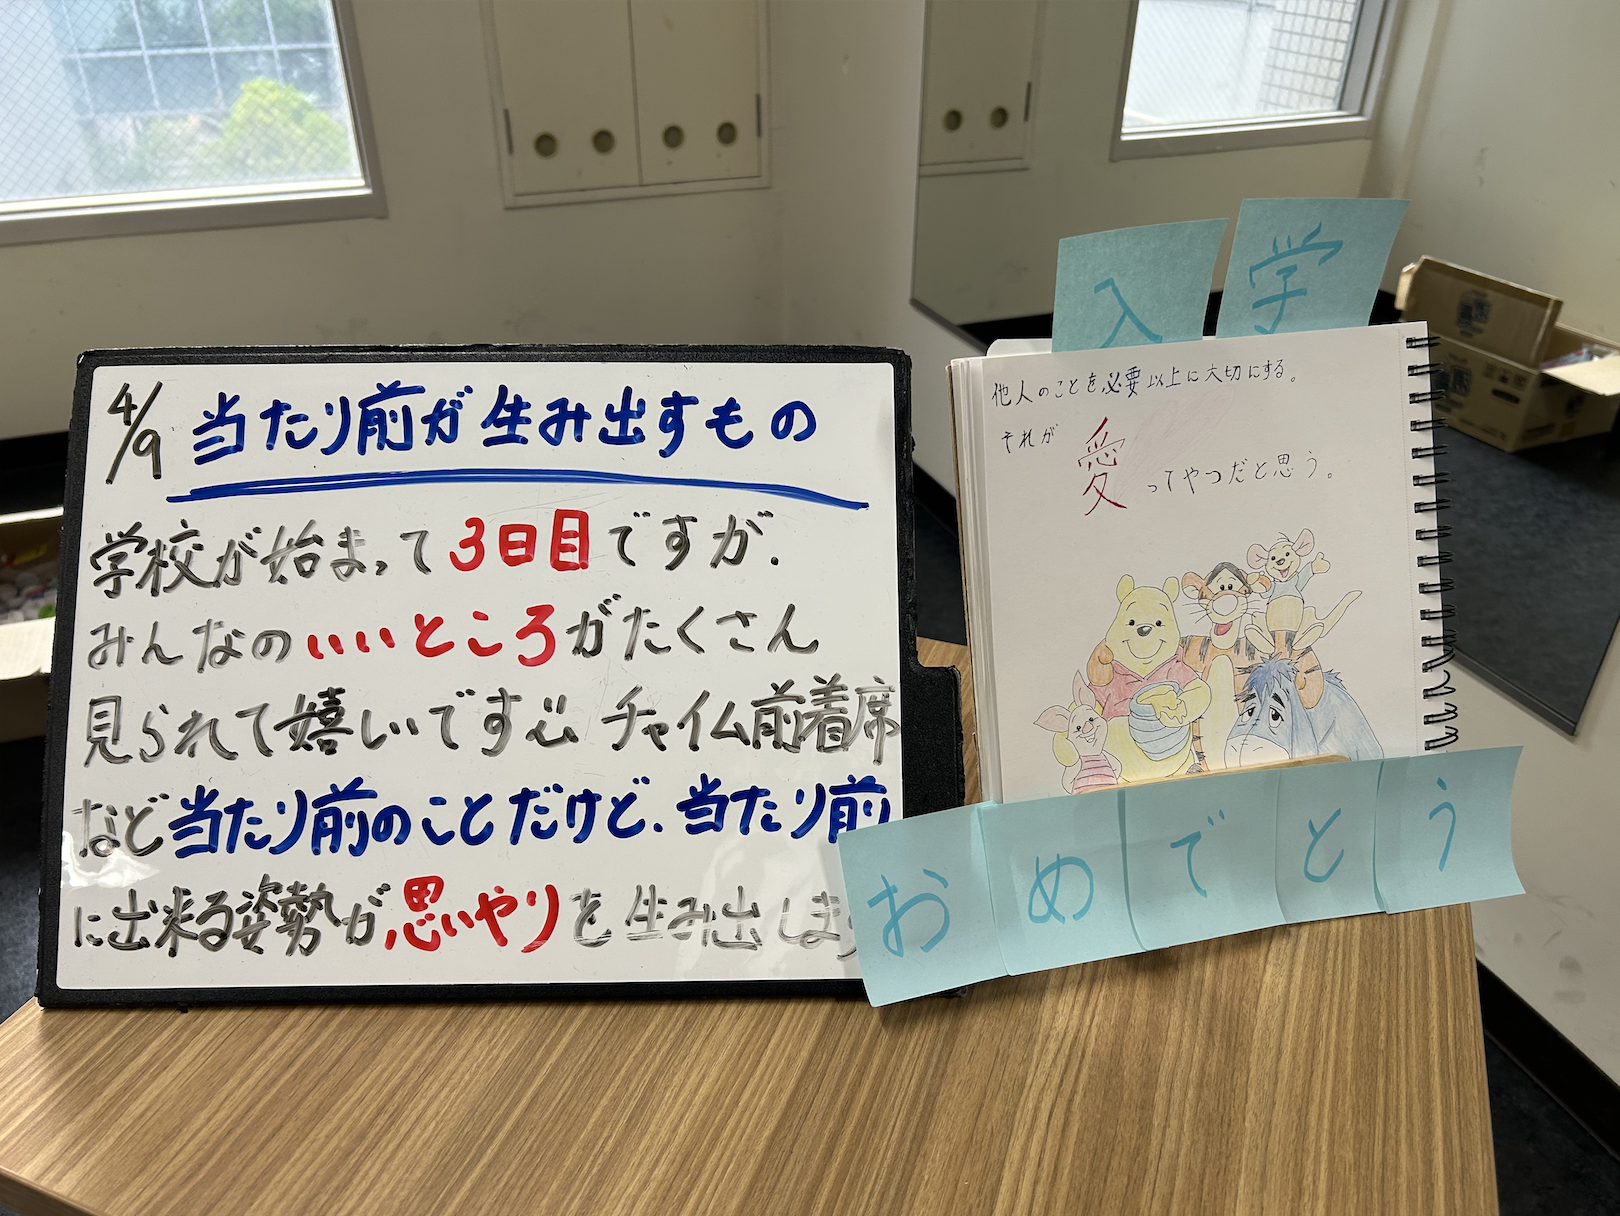 4/9 当たり前が生み出すもの
学校が始まって3日目ですが、
みんなのいいところがたくさん
見られて嬉しいです チャイム前着席
など当たり前のことだけど、当たり前
に出来る姿勢が思いやりを生み出しま
入学
他人のことを必要以上に大切にする。
それが愛ってやつだと思う。
おめでとう